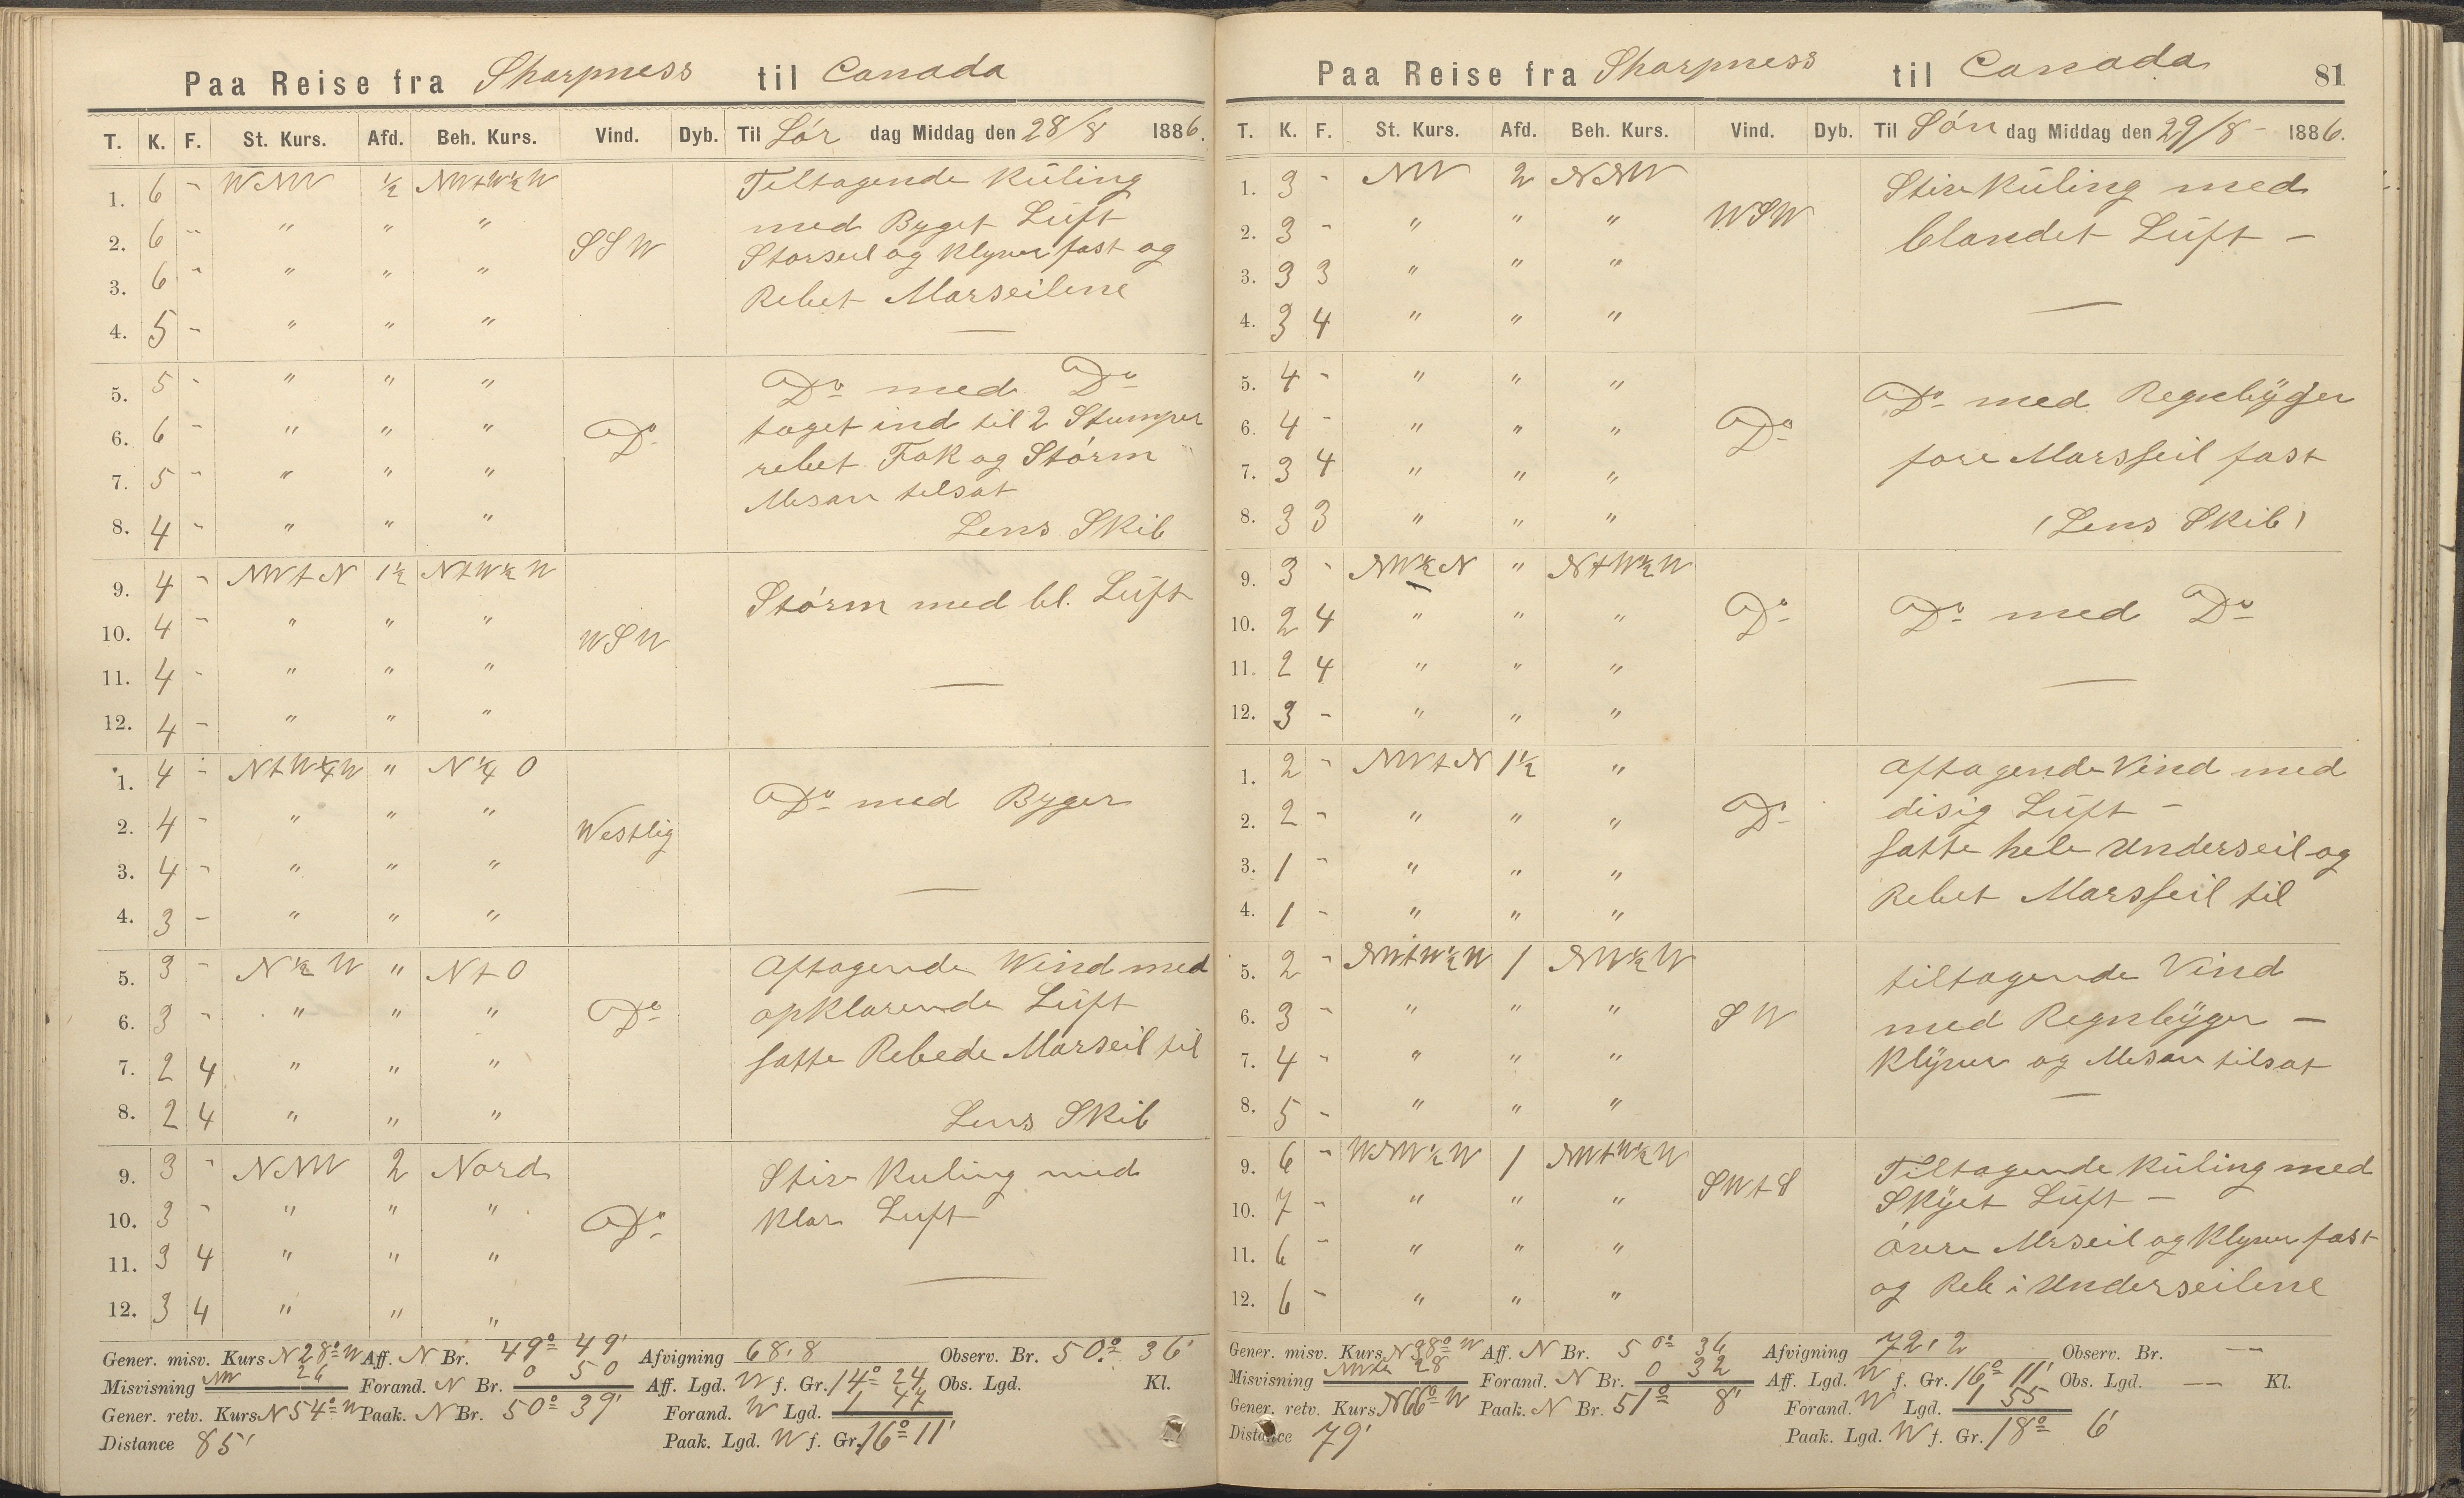 Paa Reise fra Sharpness til Canada
T. K. F. St. Kurs. Afd. Beh. Kurs. Vind. Dyb. Til Lör dag Middag den 28/8 1886.
1. 6 - WNW ½ NWtW½W Tiltagende Kuling
2. 6 - " " " SSW med Byget Luft
3. 6 - " " " Storseil og Klyver fast og
4. 5 - " " " Rebet Marseilene
5. 5 - " " " Do med Do
6. 6 - " " " Do taget ind til 2 Stumper
7. 5 - " " " rebet Fok og Störm
8. 4 - " " " Mesan tilsat
Lens Skib
9. 4 - NWtN 1½ NtW½W Störm med bl. Luft
10. 4 - " " " WSW
11. 4 - " " "
12. 4 - " " "
1. 4 - NtW¼W " N¼O Do med Byger
2. 4 - " " " Westlig
3. 4 - " " "
4. 3 - " " "
5. 3 - N½W " NtO Aftagende Wind med
6. 3 - " " " Do opklarende Luft
7. 2 4 " " " satte Rebede Marseil til
8. 2 4 " " " Lens Skib
9. 3 - NNW 2 Nord Stiv Kuling med
10. 3 - " " " Do klar Luft
11. 3 4 " " "
12. 3 4 " " "
Gener. misv. Kurs N 28° W Aff. N Br. 49° 49' Afvigning 68,8 Observ. Br. 50° 36'
Misvisning NW 26 Forand. N Br. 0 50 Aff. Lgd. W f. Gr. 14° 24 Obs. Lgd. Kl.
Gener. retv. Kurs N 54° W Paak. N Br. 50° 39' Forand. W Lgd. 1 47
Distance 85' Paak. Lgd. W f. Gr. 16° 11'
Paa Reise fra Sharpness til Canada 81
T. K. F. St. Kurs. Afd. Beh. Kurs. Vind. Dyb. Til Sön dag Middag den 29/8 - 1886.
1. 3 - NW 2 NNW Stiv Kuling med
2. 3 - " " " WSW blandet Luft -
3. 3 3 " " "
4. 3 4 " " "
5. 4 - " " " Do med Regnbyger
6. 4 - " " " Do
7. 3 4 " " " fore Marsseil fast
8. 3 3 " " " (Lens Skib)
9. 3 - NW½N " NtW½W
10. 2 4 " " " Do Do med Do
11. 2 4 " " "
12. 3 - " " "
1. 2 - NWtN 1½ " aftagende Vind med
2. 2 - " " " Do disig Luft -
3. 1 - " " " satte hele Underseil og
4. 1 - " " " Rebet Marsseil til
5. 2 - NWtW½W 1 NW½W tiltagende Vind
6. 3 - " " " SW med Regnbyger -
7. 4 - " " " Klyver og Mesan tilsat
8. 5 - " " "
9. 6 - WNW½W 1 NWtW½W Tiltagende Kuling med
10. 7 - " " " SWtS Skyet Luft -
11. 6 - " " " övre Mrseil og Klyver fast
12. 6 - " " " og Reb i Underseilene
Gener. misv. Kurs N 38° W Aff. N Br. 50° 36 Afvigning 72,2 Observ. Br. --
Misvisning 28 Forand. N Br. 0 32 Aff. Lgd. W f. Gr. 16° 11' Obs. Lgd. -- Kl.
Gener. retv. Kurs N 66° W Paak. N Br. 51° 8' Forand. W Lgd. 1 55
Distance 79' Paak. Lgd. W f. Gr. 18° 6'